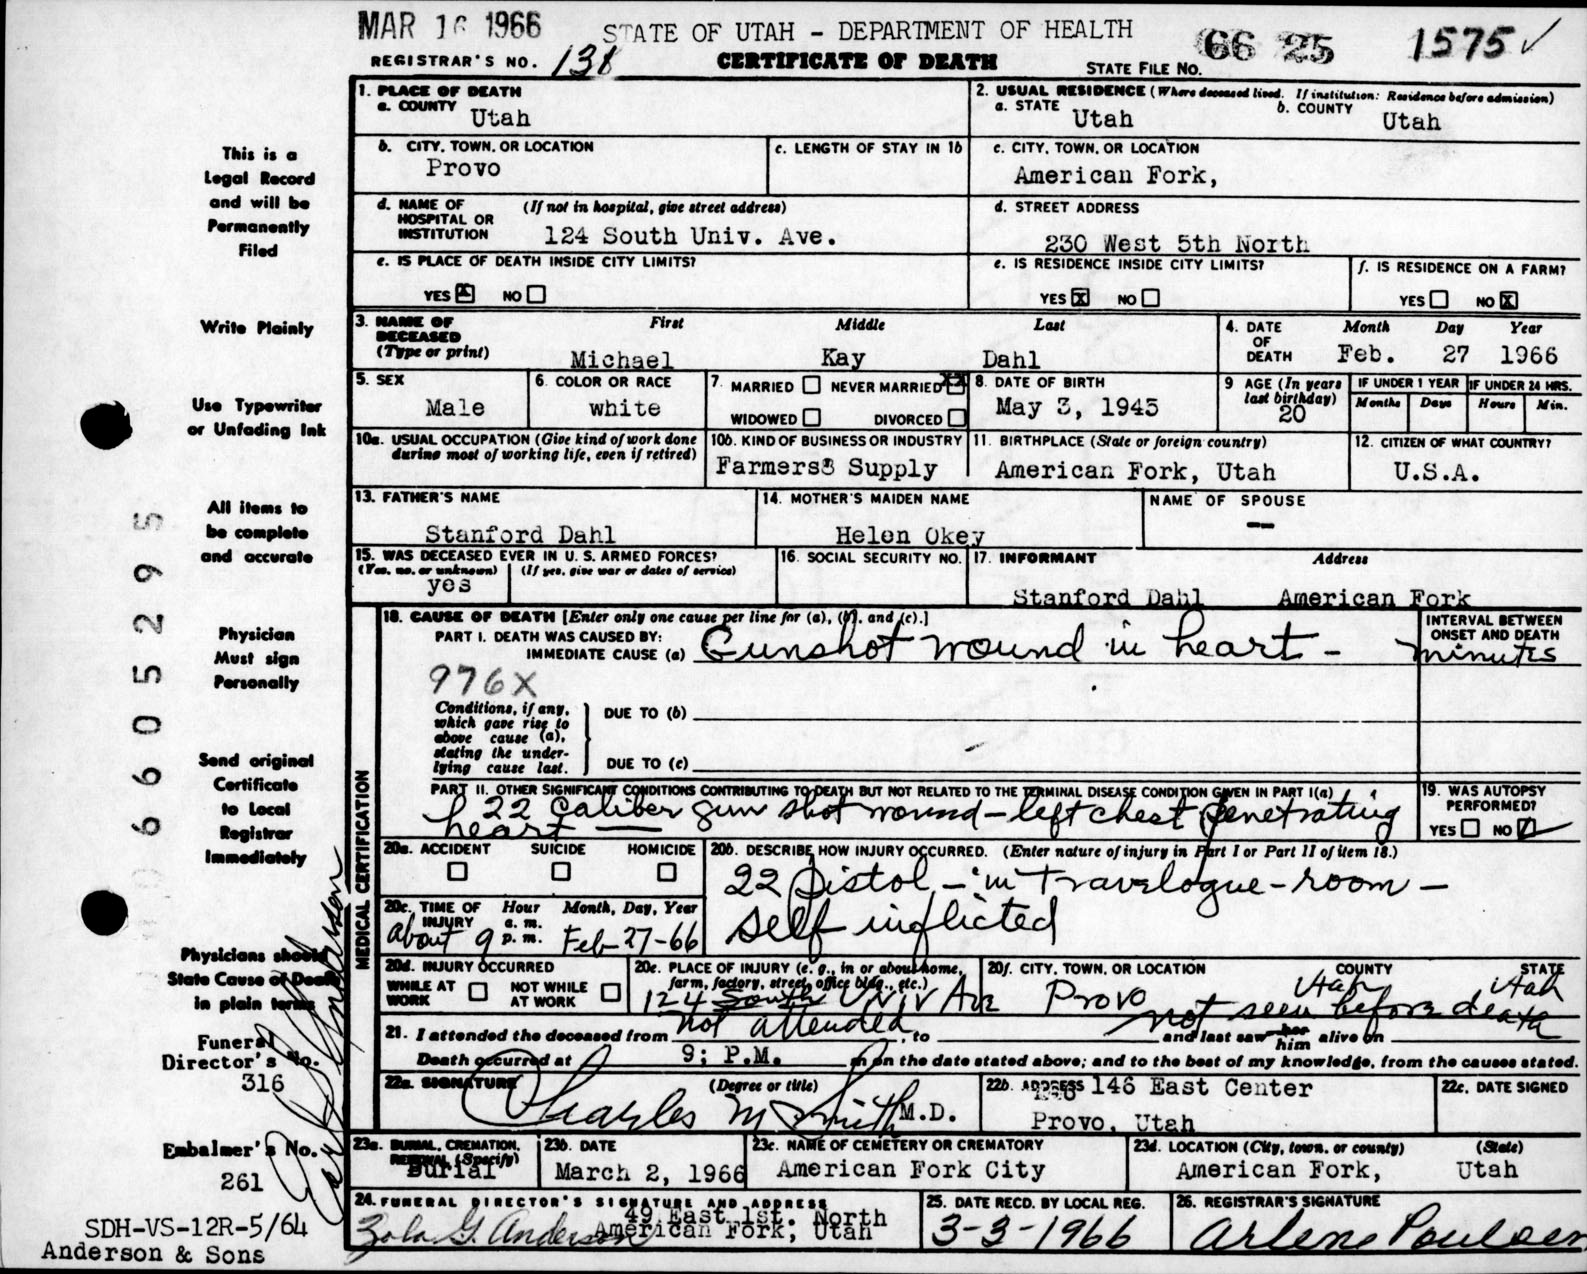 MAR 16 1966
STATE OF UTAH - DEPARTMENT OF HEALTH
66 25 1575 ✓
REGISTRAR'S NO. 138
CERTIFICATE OF DEATH
STATE FILE NO.
1. PLACE OF DEATH
a. COUNTY
Utah
2. USUAL RESIDENCE (Where deceased lived. If institution: Residence before admission)
a. STATE
Utah
b. COUNTY
Utah
b. CITY, TOWN, OR LOCATION
Provo
c. LENGTH OF STAY IN 1b
c. CITY, TOWN, OR LOCATION
American Fork,
d. NAME OF HOSPITAL OR INSTITUTION
(If not in hospital, give street address)
124 South Univ. Ave.
d. STREET ADDRESS
230 West 5th North
e. IS PLACE OF DEATH INSIDE CITY LIMITS?
YES X NO
e. IS RESIDENCE INSIDE CITY LIMITS?
YES X NO
f. IS RESIDENCE ON A FARM?
YES NO X
3. NAME OF DECEASED
(Type or print)
First Middle Last
Michael Kay Dahl
4. DATE OF DEATH
Month Day Year
Feb. 27 1966
5. SEX
Male
6. COLOR OR RACE
white
7. MARRIED NEVER MARRIED XX
WIDOWED DIVORCED
8. DATE OF BIRTH
May 3, 1945
9 AGE (In years last birthday)
20
IF UNDER 1 YEAR
Months Days
IF UNDER 24 HRS.
Hours Min.
10a. USUAL OCCUPATION (Give kind of work done during most of working life, even if retired)
10b. KIND OF BUSINESS OR INDUSTRY
Farmers Supply
11. BIRTHPLACE (State or foreign country)
American Fork, Utah
12. CITIZEN OF WHAT COUNTRY?
U.S.A.
13. FATHER'S NAME
Stanford Dahl
14. MOTHER'S MAIDEN NAME
Helen Okey
NAME OF SPOUSE
—
15. WAS DECEASED EVER IN U. S. ARMED FORCES?
(Yes, no, or unknown) (If yes, give war or dates of service)
yes
16. SOCIAL SECURITY NO.
17. INFORMANT Address
Stanford Dahl American Fork
MEDICAL CERTIFICATION
18. CAUSE OF DEATH [Enter only one cause per line for (a), (b), and (c).]
PART I. DEATH WAS CAUSED BY:
IMMEDIATE CAUSE (a) Gunshot wound in heart -
INTERVAL BETWEEN ONSET AND DEATH
minutes
976X
Conditions, if any, which gave rise to above cause (a), stating the underlying cause last.
DUE TO (b)
DUE TO (c)
PART II. OTHER SIGNIFICANT CONDITIONS CONTRIBUTING TO DEATH BUT NOT RELATED TO THE TERMINAL DISEASE CONDITION GIVEN IN PART I(a)
22 caliber gun shot wound - left chest penetrating
heart
19. WAS AUTOPSY PERFORMED?
YES NO
20a. ACCIDENT SUICIDE HOMICIDE
20b. DESCRIBE HOW INJURY OCCURRED. (Enter nature of injury in Part I or Part II of item 18.)
22 Pistol - in Travelogue - room -
self inflicted
20c. TIME OF INJURY
Hour a. m. p. m. Month, Day, Year
about 9 Feb-27-66
20d. INJURY OCCURRED
WHILE AT WORK NOT WHILE AT WORK
20e. PLACE OF INJURY (e. g., in or about home, farm, factory, street, office bldg., etc.)
124 South Univ Ave
20f. CITY, TOWN, OR LOCATION COUNTY STATE
Provo Utah Utah
21. I attended the deceased from not attended, to not seen before death and last saw her him alive on
Death occurred at 9; P.M. m on the date stated above; and to the best of my knowledge, from the causes stated.
22a. SIGNATURE (Degree or title)
Charles M Smith M.D.
22b. ADDRESS 146 East Center
Provo, Utah
22c. DATE SIGNED
23a. BURIAL, CREMATION, REMOVAL (Specify)
Burial
23b. DATE
March 2, 1966
23c. NAME OF CEMETERY OR CREMATORY
American Fork City
23d. LOCATION (City, town, or county) (State)
American Fork, Utah
24. FUNERAL DIRECTOR'S SIGNATURE AND ADDRESS
49 East 1st. North
Zola G. Anderson American Fork, Utah
25. DATE RECD. BY LOCAL REG.
3-3-1966
26. REGISTRAR'S SIGNATURE
Arlene Poulsen
This is a
Legal Record
and will be
Permanently
Filed
Write Plainly
Use Typewriter
or Unfading Ink
All items to
be complete
and accurate
Physician
Must sign
Personally
Send original
Certificate
to Local
Registrar
Immediately
Physicians should
State Cause of Death
in plain terms
Funeral
Director's No.
316
Embalmer's No.
261
SDH-VS-12R-5/64
Anderson & Sons
0 6 6 0 5 2 9 5